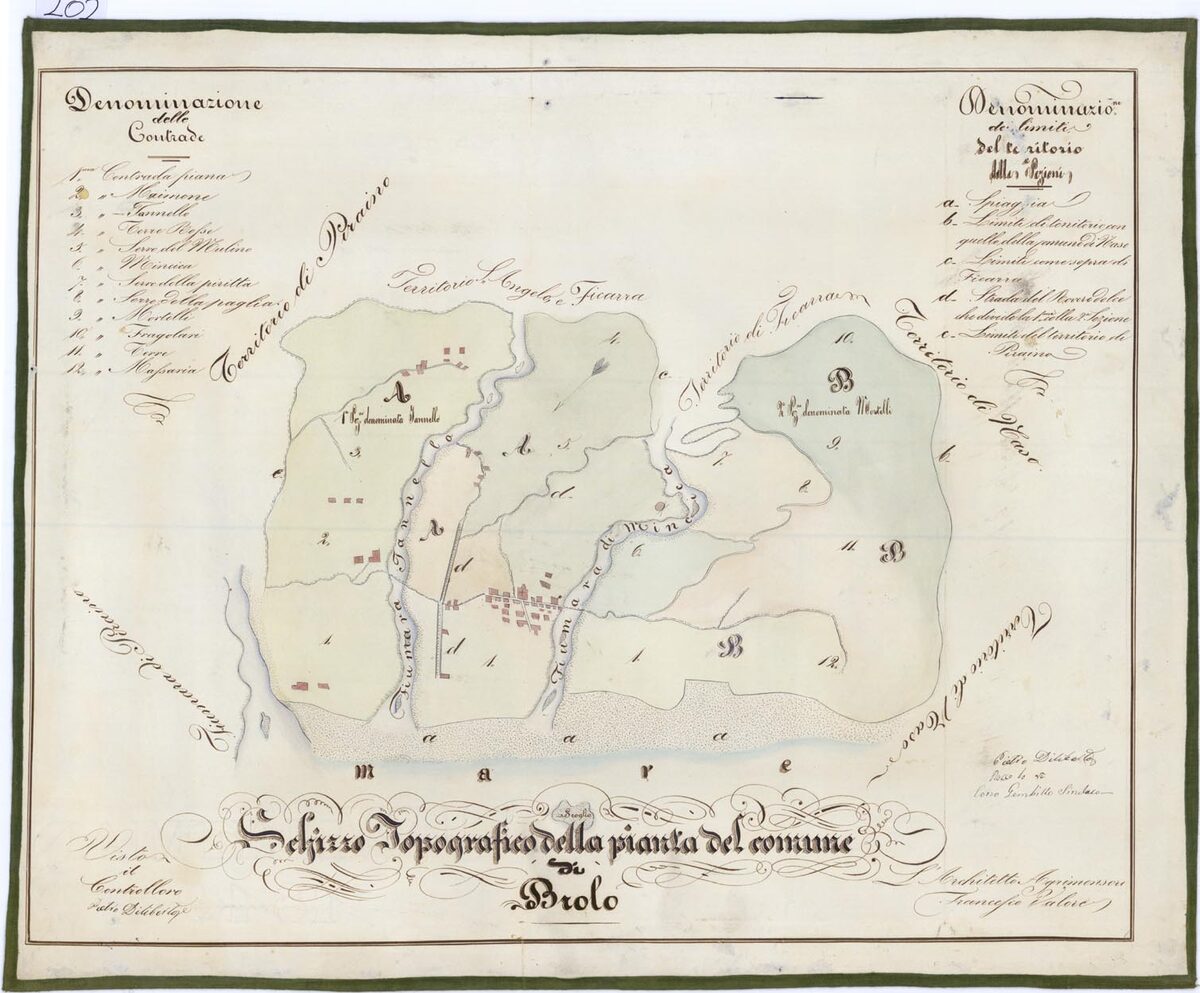 202
Denominazione
delle
Contrade
1.ma Contrada piana
2. " Maimone
3. " Jannello
4. " Terre Rosse
5. " Serro del Mulino
6. " Mincica
7. " Serro della piritta
8. " Serro della paglia
9. " Mortilli
10. " Fragolari
11. " Torre
12. " Massaria
Denominazio.ne
de' limiti
del te ritorio
delle Sezioni
a - Spiaggia
b - Limite di territorio con
quello della comune di Naso
c - Limite come sopra di
Ficarra
d - Strada del
che divide la 1.a colla 2.a Sezione
e - Limite del territorio di
Piraino
Territorio di Piraino
Territorio S. Angelo e Ficarra
Territorio di Ficarra
Territorio di Naso
10.
4.
A
B
1.a Sez.ne denominata Jannello
2.a Sez.ne denominata Mortilli
c
A
5.
9.
3.
7.
b.
e
8.
d.
2.
A
6.
11.
B
d
Fiumara Jannello
Fiumara di Mincica
1.
d
1.
1.
B
12.
Fiumara di Piraino
Territorio di Naso
a a a
mare
Scoglio
Schizzo Topografico della pianta del comune
di
Brolo
Visto
il
Controlloro
Pietro Diliberto
Pietro Diliberto
Sindaco
L'Architetto Agrimensore
Francesco Valore